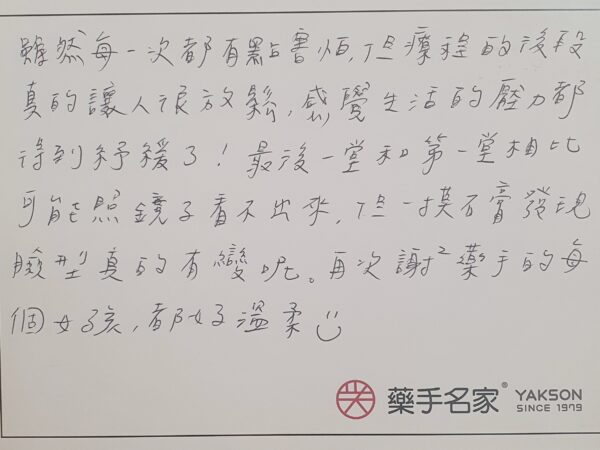 雖然每一次都有點害怕,但療程的後段
真的讓人很放鬆,感覺生活的壓力都
得到紓緩了!最後一堂和第一堂相比
可能照鏡子看不出來,但一摸石膏發現
臉型真的有變呢。再次謝²藥手的每
個女孩,都好溫柔☺
藥手名家® YAKSON
SINCE 1979